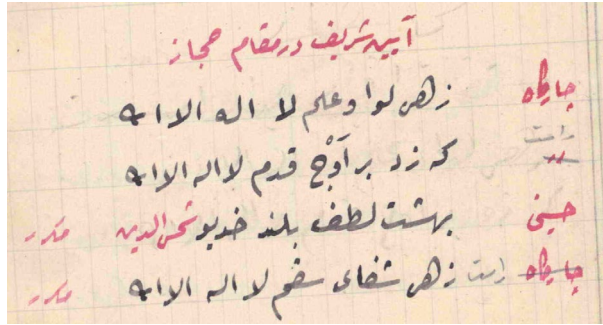 آیین شریف در مقام حجاز
چارگاه زهی لوا و علم لا اله الا الله
راست که زد بر اَوْج قدم لا اله الا الله
حسینی بهشت لطف بلند خدیو شمس الدین مکرر
چارگاه راست زهی شفای سقم لا اله الا الله مکرر